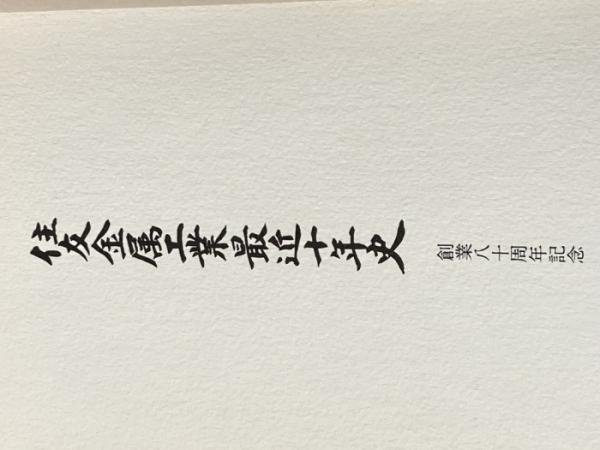 住友金属工業最近十年史
創業八十周年記念